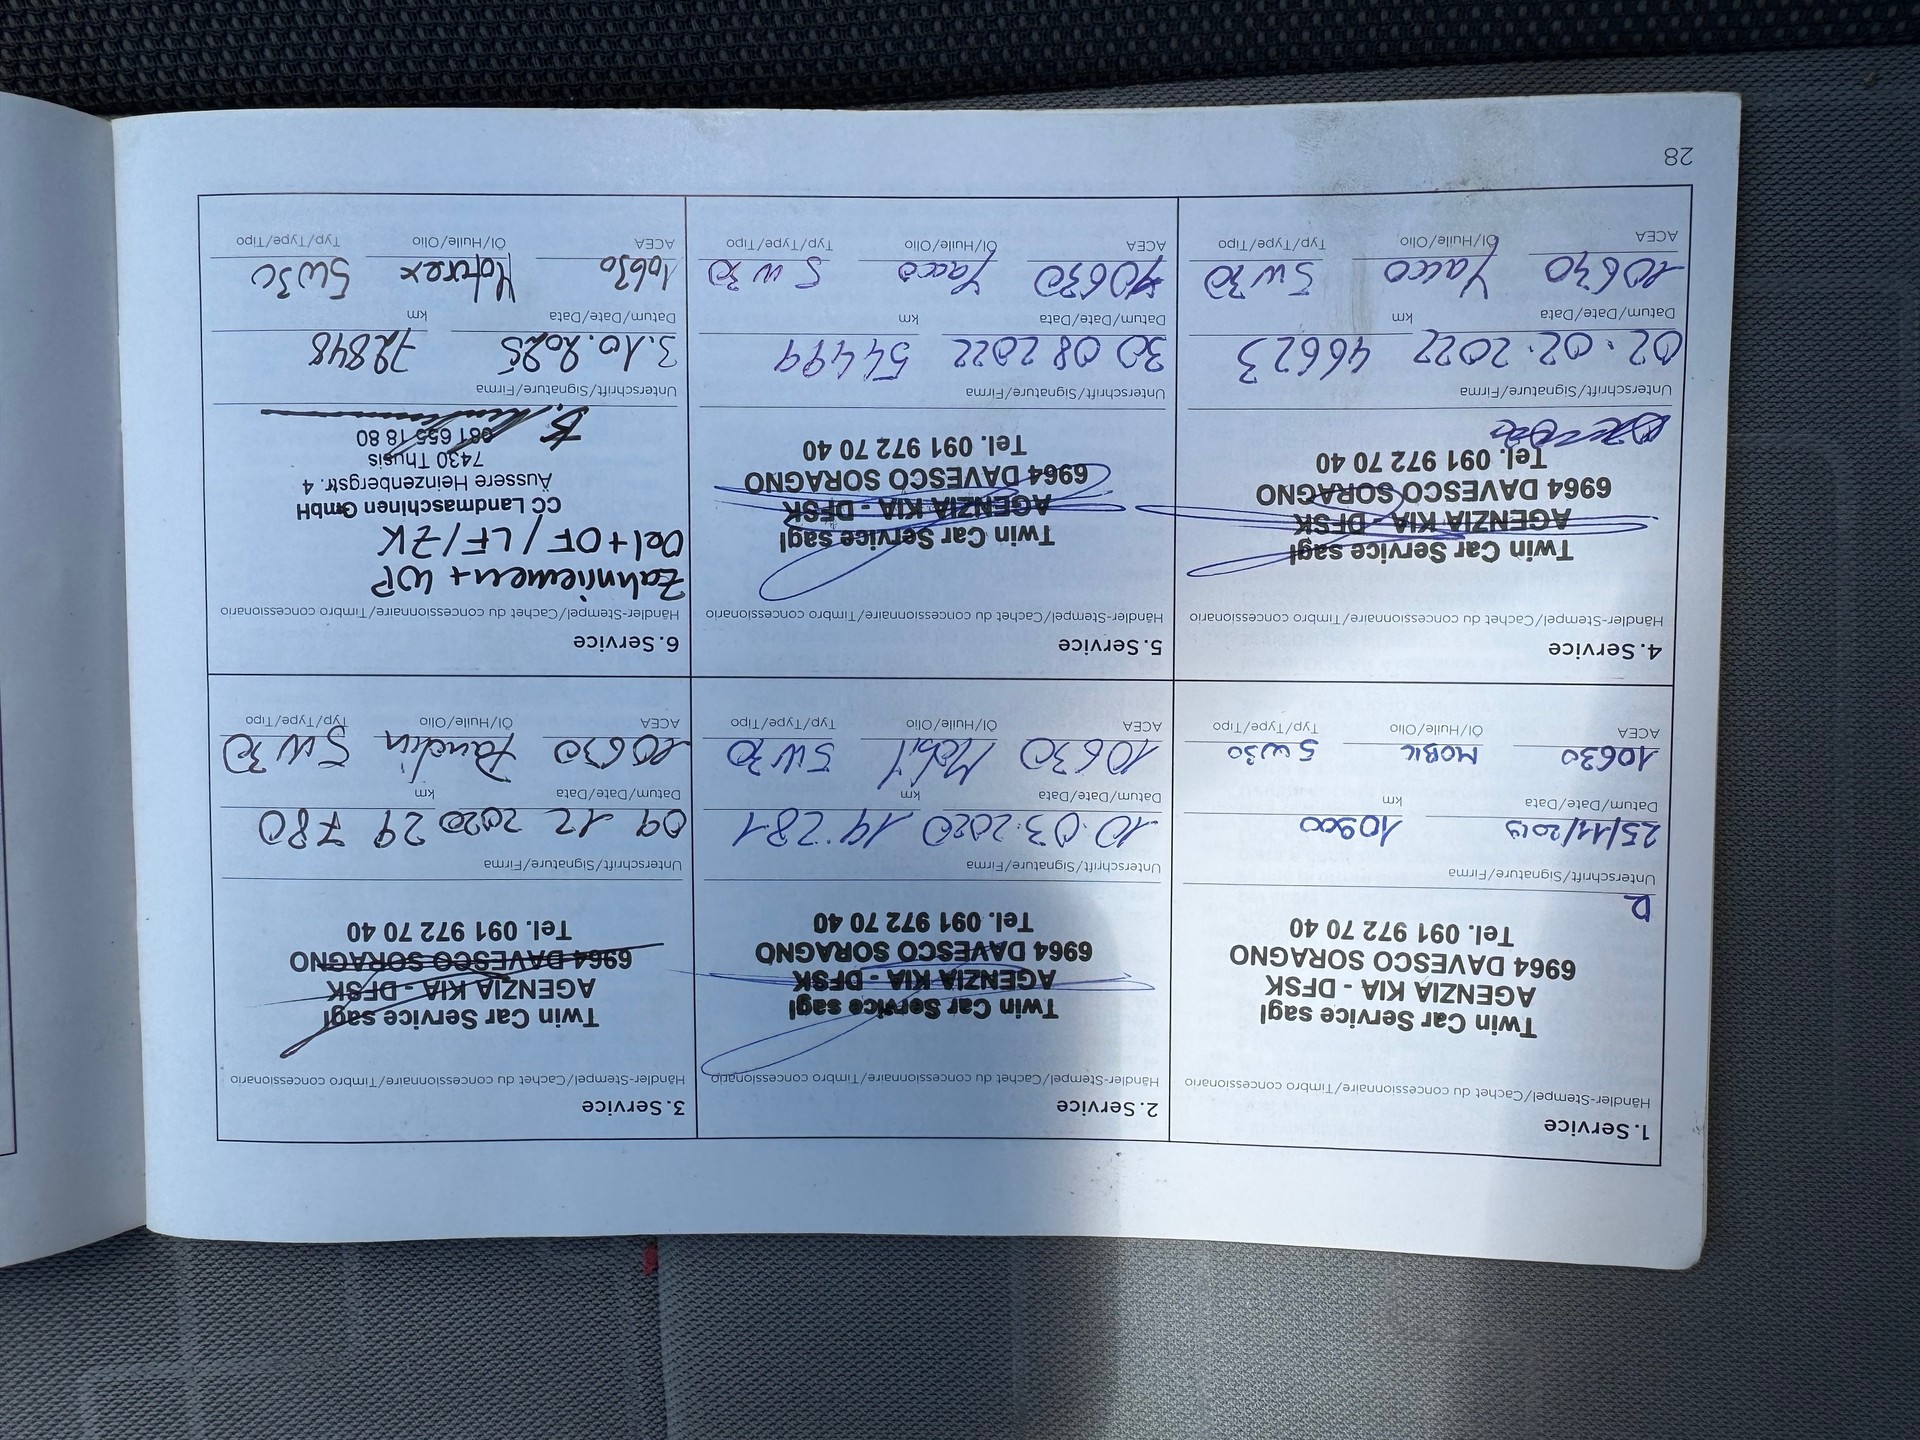 1. Service
Händler-Stempel/Cachet du concessionnaire/Timbro concessionario
Twin Car Service sagl
AGENZIA KIA - DFSK
6964 DAVESCO SORAGNO
Tel. 091 972 70 40
Unterschrift/Signature/Firma
25/11/2019 10900
Datum/Date/Data km
10630 MOBIL 5W30
ACEA Öl/Huile/Olio Typ/Type/Tipo
2. Service
Händler-Stempel/Cachet du concessionnaire/Timbro concessionario
Twin Car Service sagl
AGENZIA KIA - DFSK
6964 DAVESCO SORAGNO
Tel. 091 972 70 40
Unterschrift/Signature/Firma
10.03.2020 19'281
Datum/Date/Data km
10630 Mobil 5W30
ACEA Öl/Huile/Olio Typ/Type/Tipo
3. Service
Händler-Stempel/Cachet du concessionnaire/Timbro concessionario
Twin Car Service sagl
AGENZIA KIA - DFSK
6964 DAVESCO SORAGNO
Tel. 091 972 70 40
Unterschrift/Signature/Firma
09 12 2020 29 780
Datum/Date/Data km
10630 5W30
ACEA Öl/Huile/Olio Typ/Type/Tipo
4. Service
Händler-Stempel/Cachet du concessionnaire/Timbro concessionario
Twin Car Service sagl
AGENZIA KIA - DFSK
6964 DAVESCO SORAGNO
Tel. 091 972 70 40
Unterschrift/Signature/Firma
02.02.2022 46623
Datum/Date/Data km
10630 Yacco 5W30
ACEA Öl/Huile/Olio Typ/Type/Tipo
5. Service
Händler-Stempel/Cachet du concessionnaire/Timbro concessionario
Twin Car Service sagl
AGENZIA KIA - DFSK
6964 DAVESCO SORAGNO
Tel. 091 972 70 40
Unterschrift/Signature/Firma
30 08 2022 54499
Datum/Date/Data km
10630 Yacco 5W30
ACEA Öl/Huile/Olio Typ/Type/Tipo
6. Service
Händler-Stempel/Cachet du concessionnaire/Timbro concessionario
Zahnriemen + WP
Oel+OF/LF/ZK
CC Landmaschinen GmbH
Äussere Heinzenbergstr. 4
7430 Thusis
081 655 18 80
Unterschrift/Signature/Firma
3.10.2025 72848
Datum/Date/Data km
10630 Motorex 5W30
ACEA Öl/Huile/Olio Typ/Type/Tipo
28